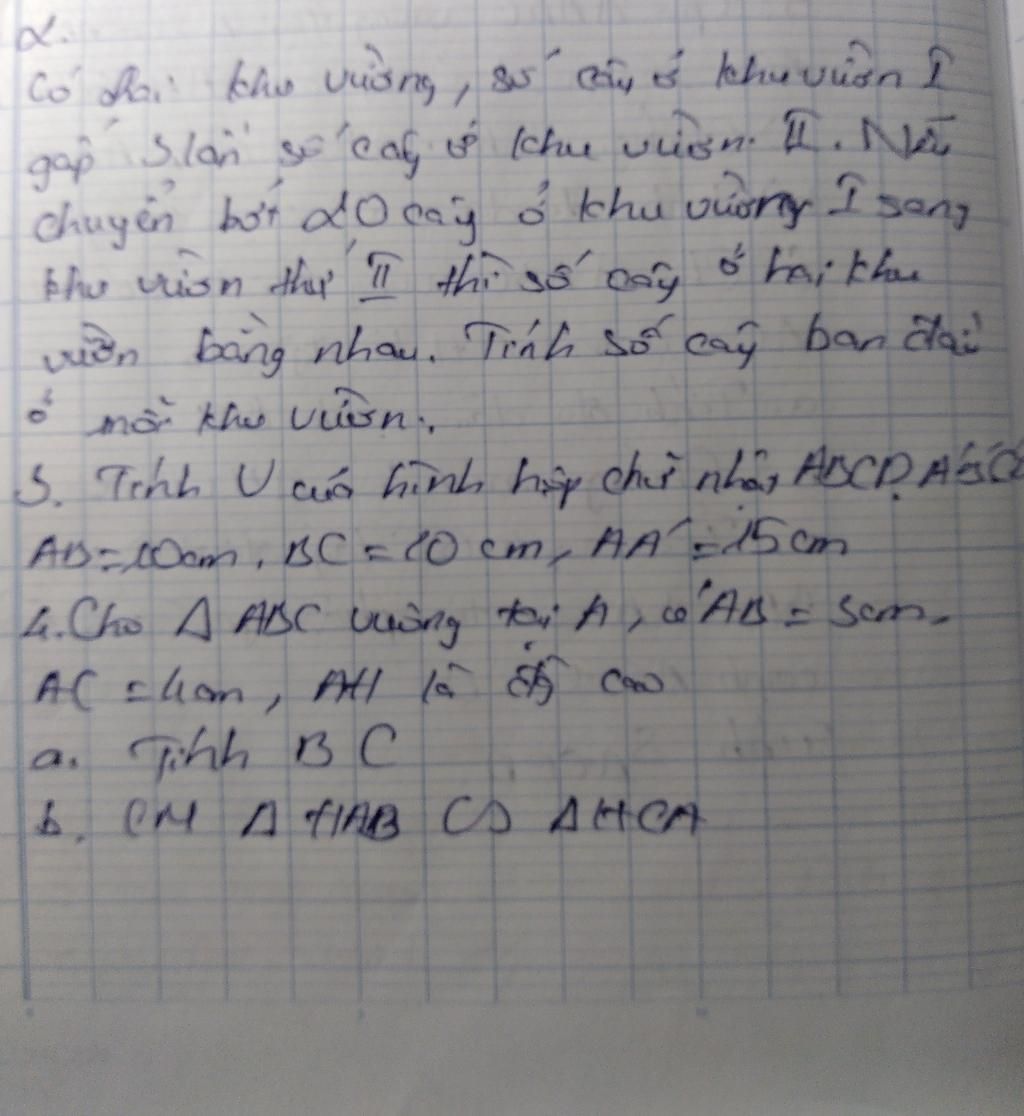 2.
Có hai khu vường, số cây ở khu vườn I
gấp 3 lần số cây ở khu vườn II. Nếu
chuyển bớt 20 cây ở khu vường I sang
khu vườn thứ II thì số cây ở hai khu
vườn bằng nhau. Tính số cây ban đầu
ở mỗi khu vườn.
3. Tính V của hình hộp chữ nhật ABCD.A'B'C'
AB = 10cm, BC = 10 cm, AA' = 15cm
4. Cho Δ ABC vuông tại A, có AB = 3cm,
AC = 4cm, AH là cao
a. Tính BC
b. CM Δ HAB ∽ Δ HCA